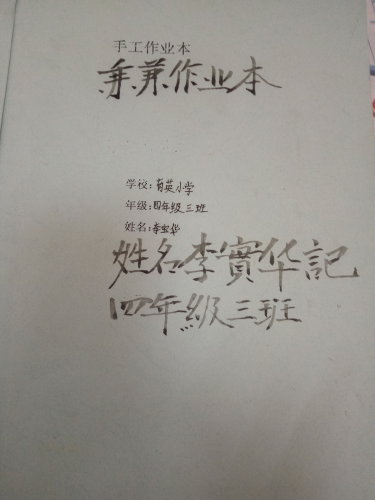 手工作业本
作业本
学校:育英小学
年级:四年级三班
姓名:李宝华
姓名李寳华記
四年級三班